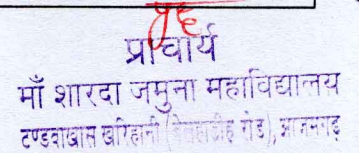 प्राचार्य
माँ शारदा जमुना महाविद्यालय
टण्डवाखास खरिहानी रोड), आजमगढ़